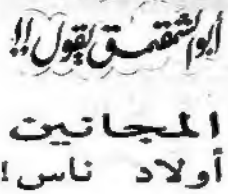 أبو الشمقمق يقول!!
المجانين
أولاد ناس!